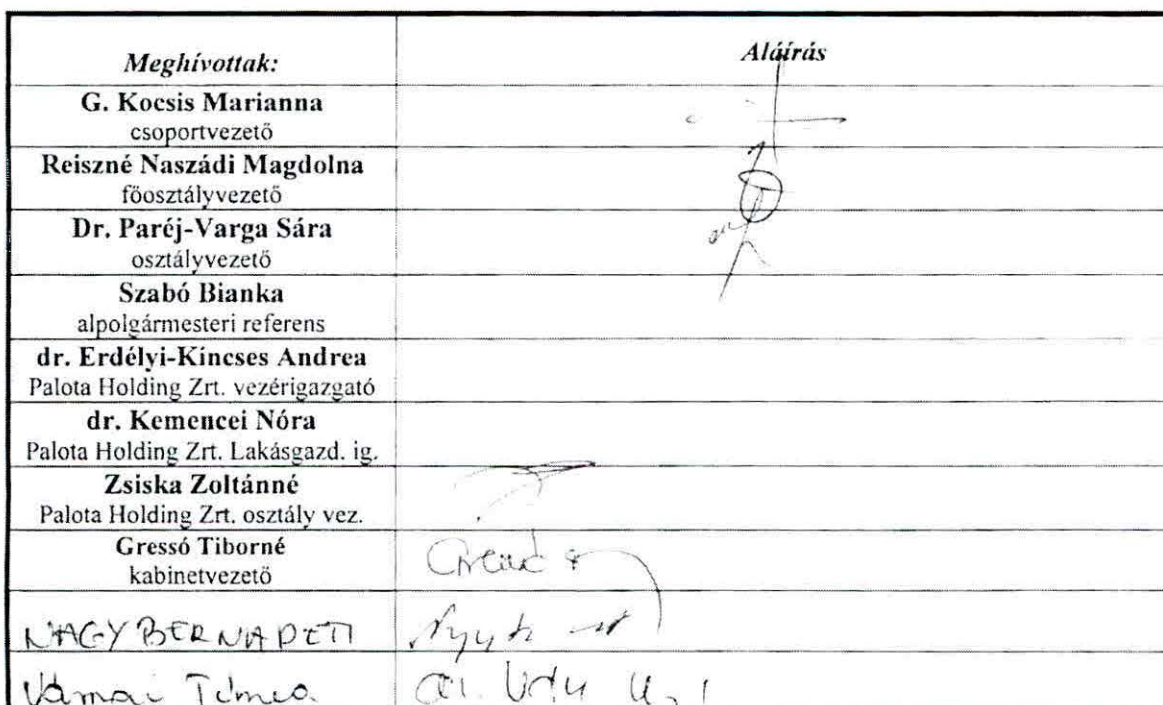 Meghívottak: Aláírás
G. Kocsis Marianna
csoportvezető
Reiszné Naszádi Magdolna
főosztályvezető
Dr. Paréj-Varga Sára
osztályvezető
Szabó Bianka
alpolgármesteri referens
dr. Erdélyi-Kincses Andrea
Palota Holding Zrt. vezérigazgató
dr. Kemencei Nóra
Palota Holding Zrt. Lakásgazd. ig.
Zsiska Zoltánné
Palota Holding Zrt. osztály vez.
Gressó Tiborné
kabinetvezető
NAGY BERNADETT
Tímea